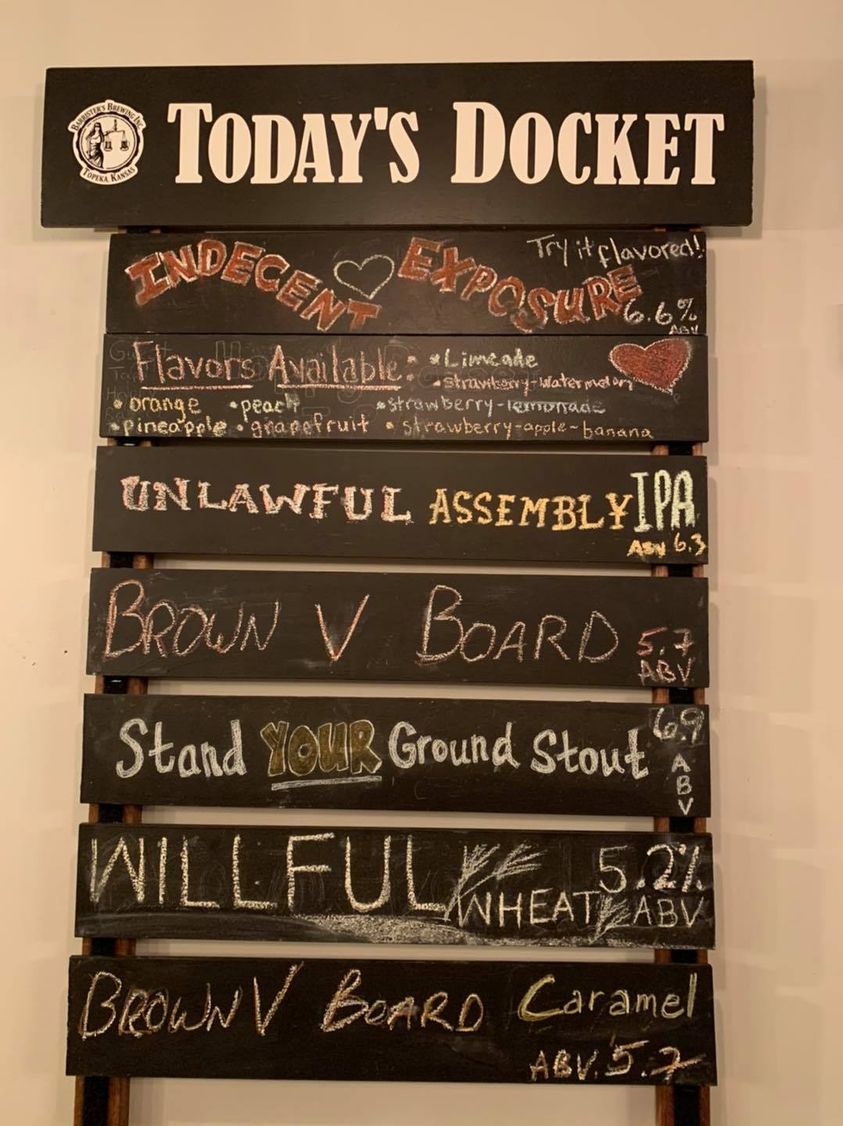 BARRISTER'S BREWING INC.
TOPEKA, KANSAS
TODAY'S DOCKET
INDECENT EXPOSURE
Try it flavored!
6.6%
ABV
Flavors Available:
• Limeade
• strawberry-watermelon
• orange • peach • strawberry-lemonade
• pineapple • grapefruit • strawberry-apple-banana
UNLAWFUL ASSEMBLY IPA
ABV 6.3
BROWN V BOARD
5.7
ABV
Stand YOUR Ground Stout
6.9
ABV
WILLFUL WHEAT
5.2%
ABV
BROWN V BOARD Caramel
ABV. 5.7